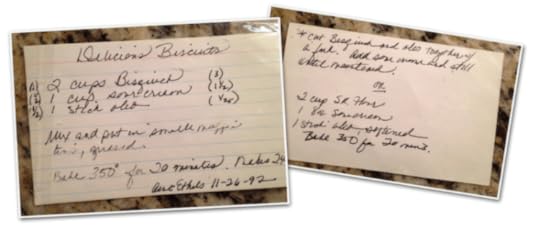 Delicious Biscuits
(1) 2 cups Bisquick (3)
(½) 1 cup sour cream (1½)
(½) 1 stick oleo
Mix and put in small muffin
tins, greased.
Bake 350° for 20 minutes. Makes 24
Aunt Ethel's 11-26-92
* cut Bisquick and oleo together w/
a fork. Add sour cream and stir
until moistened.
OR
2 cup SR Flour
Sour cream
1 stick oleo, softened
Bake 350° for 20 mins.